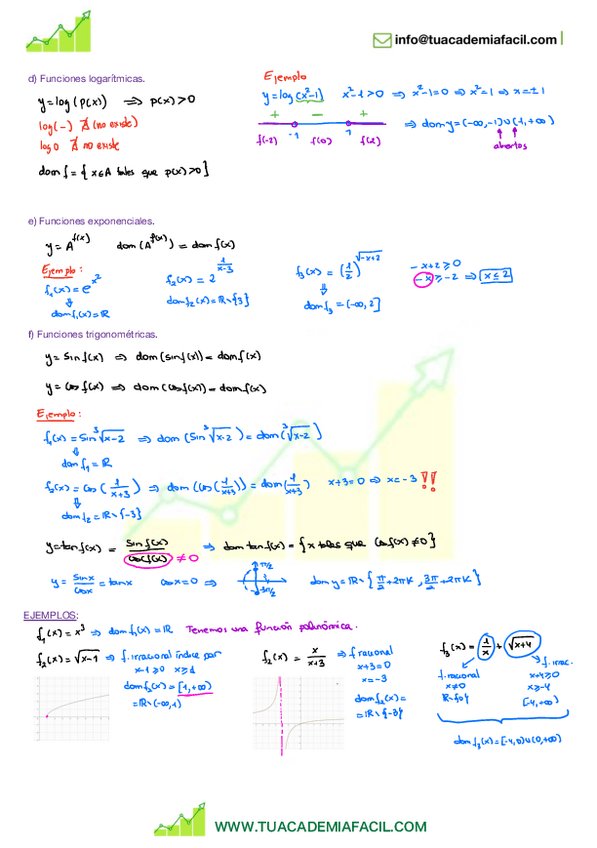 info@tuacademiafacil.com
d) Funciones logarítmicas.
y = log(p(x)) ⟹ p(x)>0
log(-) ∄ (no existe)
log 0 ∄ no existe
dom f = { x∈A tales que p(x)>0}
Ejemplo
y = log(x²-1) x²-1>0 ⟹ x²-1=0 ⟹ x²=1 ⟹ x=±1
+ - +
-1 1
f(-2) f(0) f(2)
⟹ dom y = (-∞,-1)∪(1,+∞)
abiertos
e) Funciones exponenciales.
y = A^f(x) dom(A^f(x)) = dom f(x)
Ejemplo:
f₁(x) = e^x²
⇓
dom f₁(x) = ℝ
f₂(x) = 2^(1/(x-3))
dom f₂(x) = ℝ\{3}
f₃(x) = (1/2)^√(-x+2)
⇓
dom f₃ = (-∞,2]
-x+2 ≥ 0
-x ≥ -2 ⟹ x ≤ 2
f) Funciones trigonométricas.
y = sin f(x) ⟹ dom(sin f(x)) = dom f(x)
y = cos f(x) ⟹ dom(cos f(x)) = dom f(x)
Ejemplo:
f₁(x) = sin ³√(x-2) ⟹ dom(sin ³√(x-2)) = dom(³√(x-2))
⇓
dom f₁ = ℝ
f₂(x) = cos(1/(x+3)) ⟹ dom(cos(1/(x+3))) = dom(1/(x+3)) x+3=0 ⟹ x=-3 !!
⇓
dom f₂ = ℝ\{-3}
y = tan f(x) = sin f(x)/cos f(x) ≠ 0 ⟹ dom tan f(x) = {x tales que cos f(x) ≠ 0}
y = sin x/cos x = tan x cos x = 0 ⟹ π/2 3π/2 dom y = ℝ\{π/2 + 2πK, 3π/2 + 2πK}
EJEMPLOS:
f₁(x) = x³ ⟹ dom f₁(x) = ℝ Tenemos una función polinómica.
f₂(x) = √(x-1) ⟹ f. irracional índice par
x-1 ≥ 0 x ≥ 1
dom f₂(x) = [1,+∞)
= ℝ\(-∞,1)
f₂(x) = x/(x+3) ⟹ f racional
x+3=0
x=-3
dom f₂(x) =
= ℝ\{-3}
f₃(x) = 1/x + √(x+4)
f. racional
x≠0
ℝ-{0}
f. irrac.
x+4 ≥ 0
x ≥ -4
[-4,+∞)
dom f₃(x) = [-4,0)∪(0,+∞)
WWW.TUACADEMIAFACIL.COM